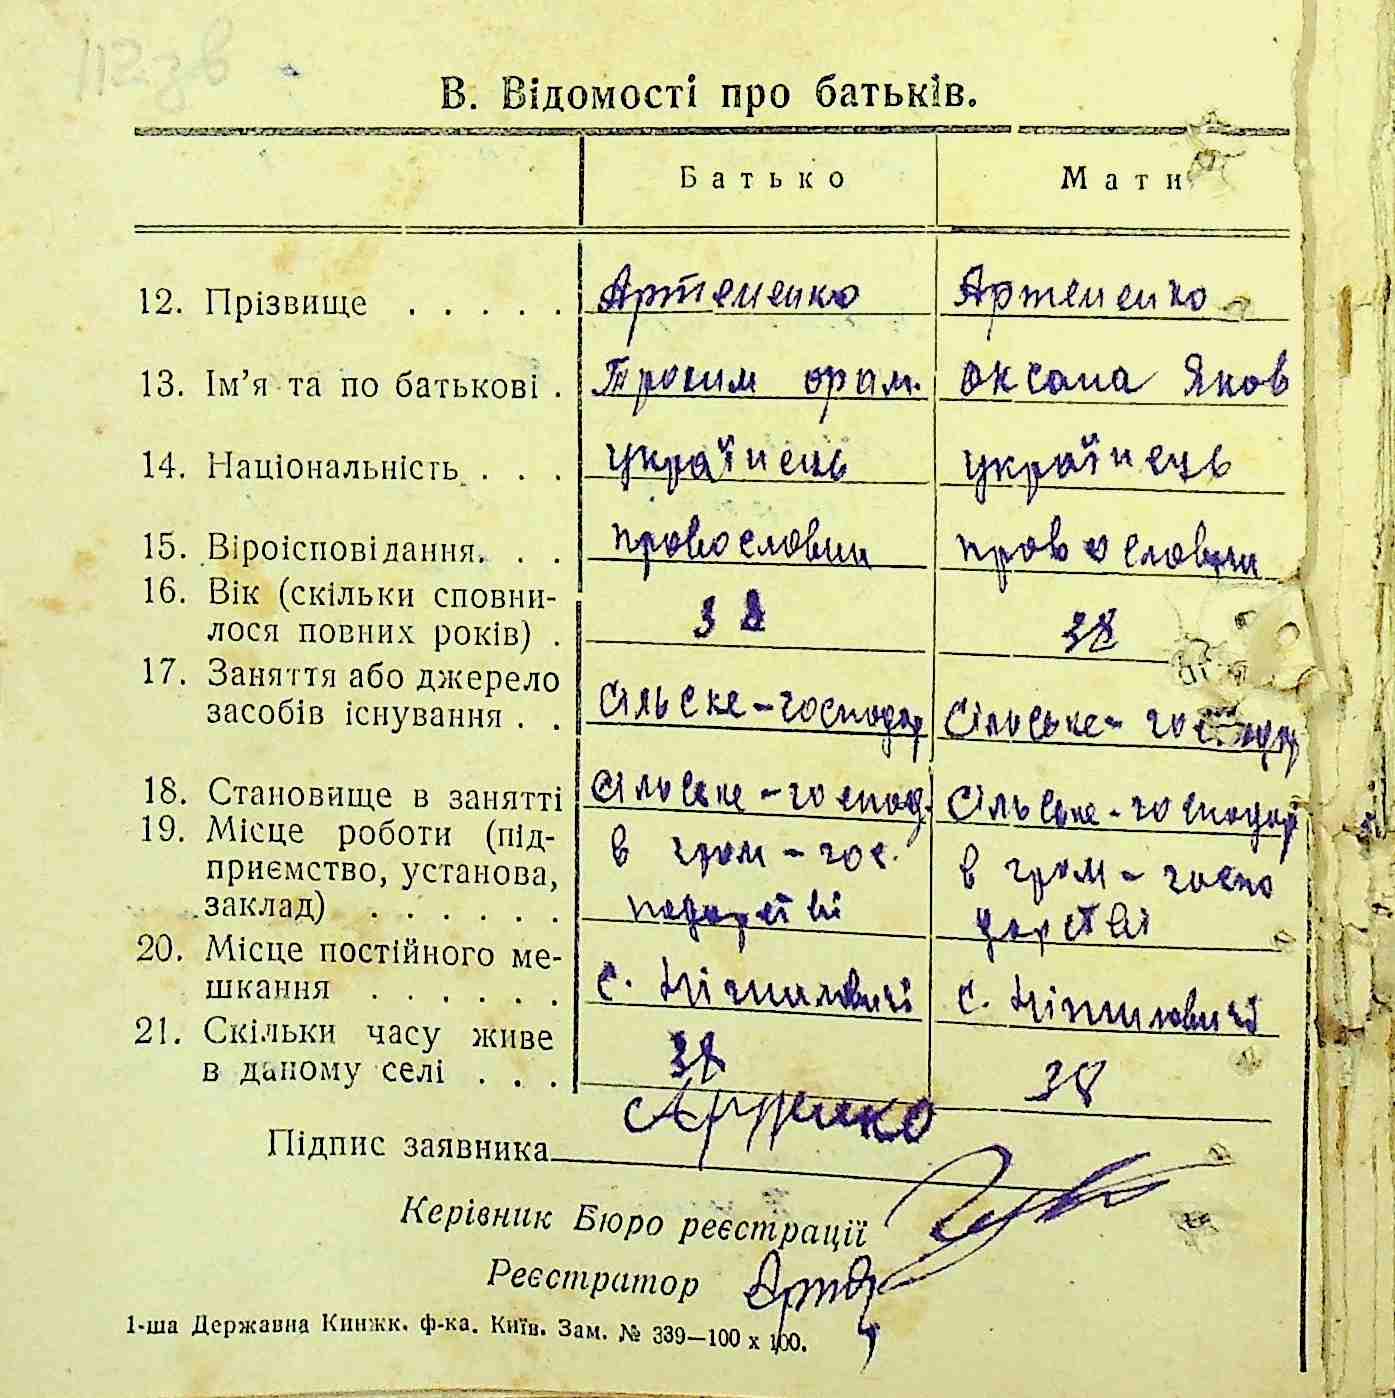 В. Відомості про батьків.
Батько Мати
12. Прізвище . . . . . Артеменко Артеменко
13. Ім’я та по батькові . Трохим Оксана Яков
14. Національність . . . українець українець
15. Віроісповідання. . . провославни провославни
16. Вік (скільки сповни-
лося повних років) . 38 38
17. Заняття або джерело
засобів існування . . Сільске-господар Сільське-господар
18. Становище в занятті Сільське-господ. Сільське-господар
19. Місце роботи (під- в гром-гос. в гром-госпо
приємство, установа, подарстві дарстві
заклад) . . . . . .
20. Місце постійного ме-
шкання . . . . . . с. с.
21. Скільки часу живе
в даному селі . . . 38 38
Підпис заявника
Керівник Бюро реєстрації
Реєстратор
1-ша Державна Книжк. ф-ка. Київ. Зам. № 339—100 х 100.